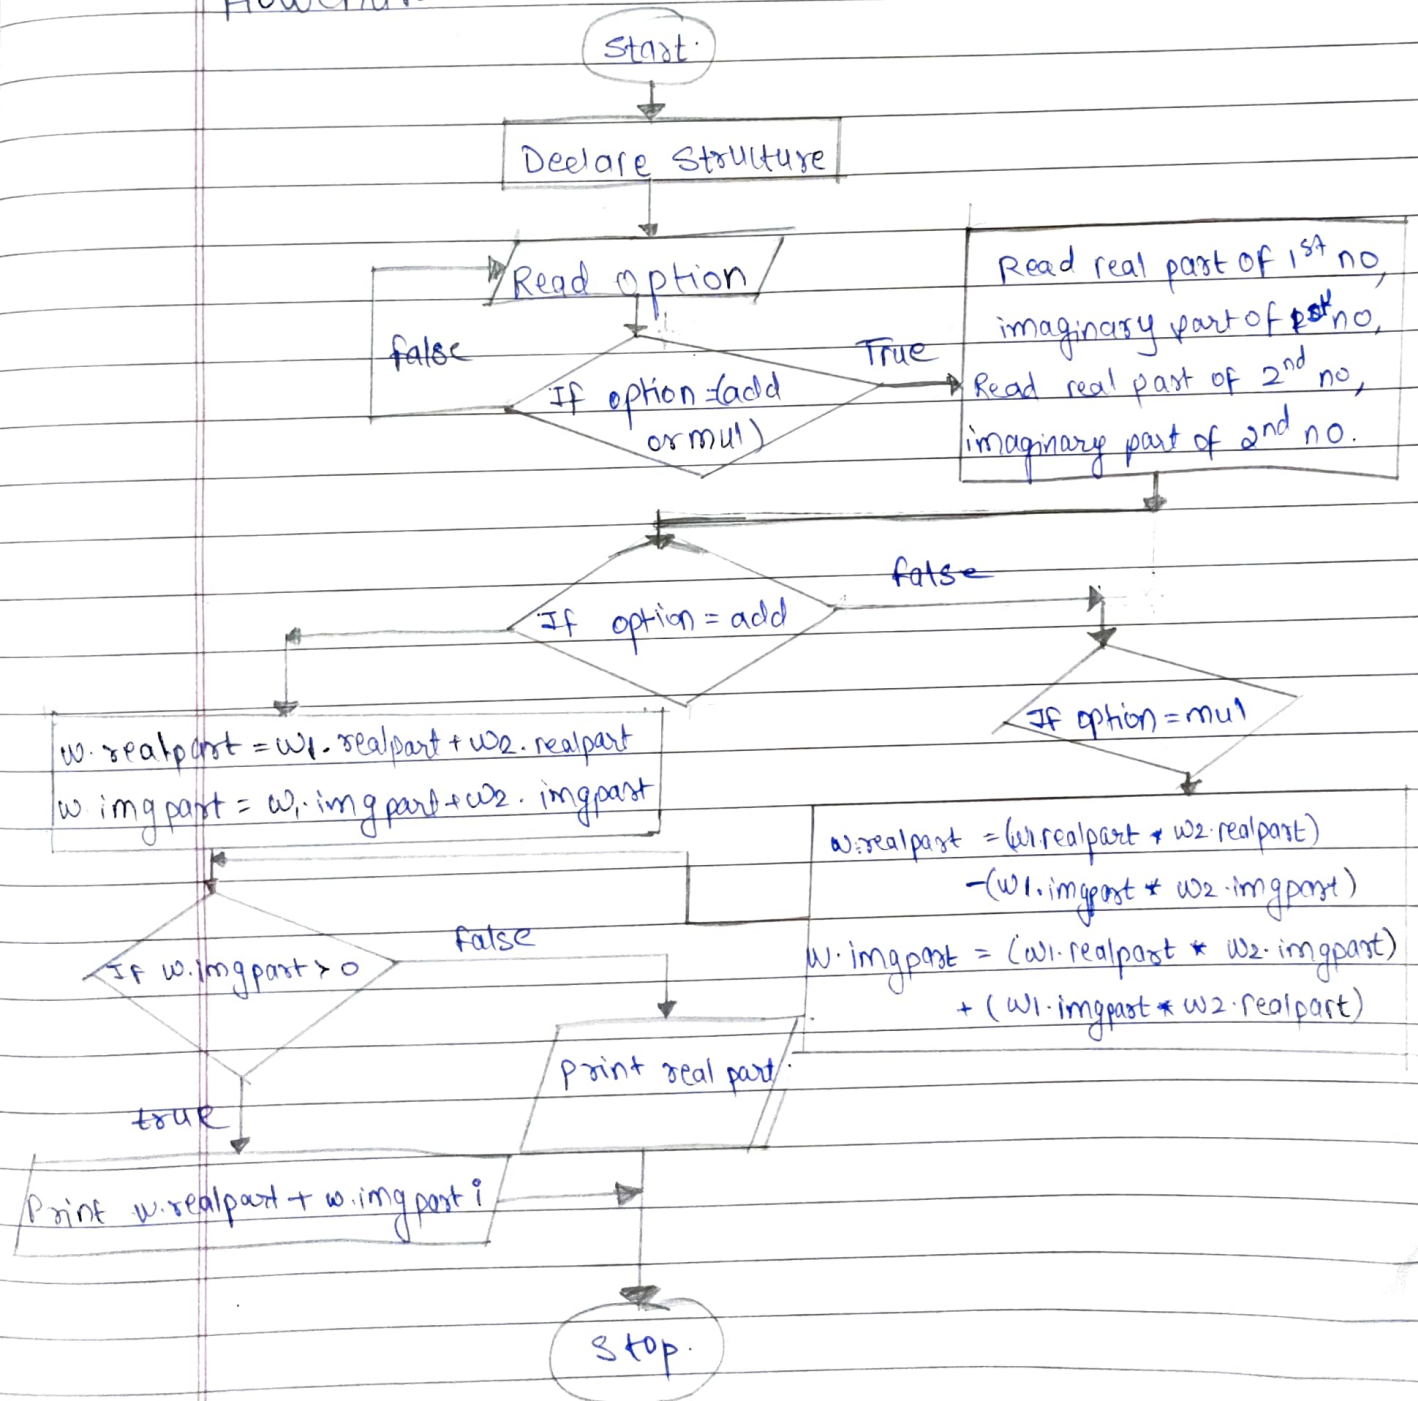 Flowchart
Start.
Declare Structure
Read option
false
If option = (add
or mul)
True
Read real part of 1st no,
imaginary part of 1st no,
Read real part of 2nd no,
imaginary part of 2nd no.
If option = add
false
If option = mul
w.realpart = w1.realpart + w2.realpart
w.imgpart = w1.imgpart + w2.imgpart
w.realpart = (w1.realpart * w2.realpart)
-(w1.imgpart * w2.imgpart)
w.imgpart = (w1.realpart * w2.imgpart)
+ (w1.imgpart * w2.realpart)
If w.imgpart > 0
false
print real part.
true
Print w.realpart + w.imgpart i
Stop.